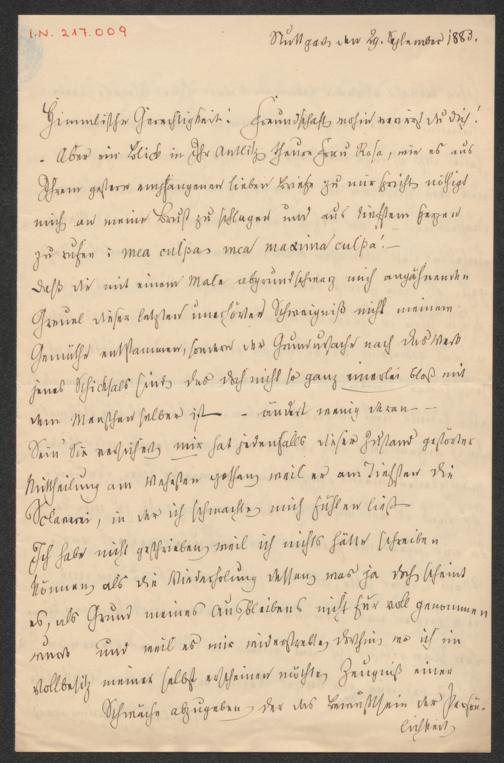 I.N. 217.009
Stuttgart den 29. September 1883.
Himmlische Gerechtigkeit! Freundschaft, wohin verirrst du dich!
- Aber ein Blick in Ihr Antlitz, theure Frau Rosa, wie es aus
Ihrem gestern empfangenen lieben Briefe zu mir spricht, nöthigt
mich an meine Brust zu schlagen und aus tiefstem Herzen
zu rufen: mea culpa, mea maxima culpa! –
Daß die mit einem Male abgrundschwarz mich angähnenden
Greuel dieser letzten unerhörten Schweigniß nicht meinem
Gemüthe entstammen, sondern der Grundursache nach das Werk
jenes Schicksals sind, das doch nicht so ganz einerlei bloß mit
dem Menschen selber ist – - ändert wenig daran –
Sein Sie versichert, mir hat jedenfalls dieser Zustand gestörter
Mittheilung am Wehesten gethan, weil er am Tiefsten die
Sclaverei, in der ich schmachte, mich fühlen ließ
Ich habe nicht geschrieben, weil ich nichts hätte schreiben
können, als die Wiederholung dessen, was ja doch, scheint
es, als Grund meines Ausbleibens nicht für voll genommen
ward und weil es mir widerstrebte, dorthin, wo ich im
Vollbesitz meiner selbst erscheinen möchte, Zeugniß einer
Schwäche abzugeben, der das Bewußtsein der Persön-
lichkeit